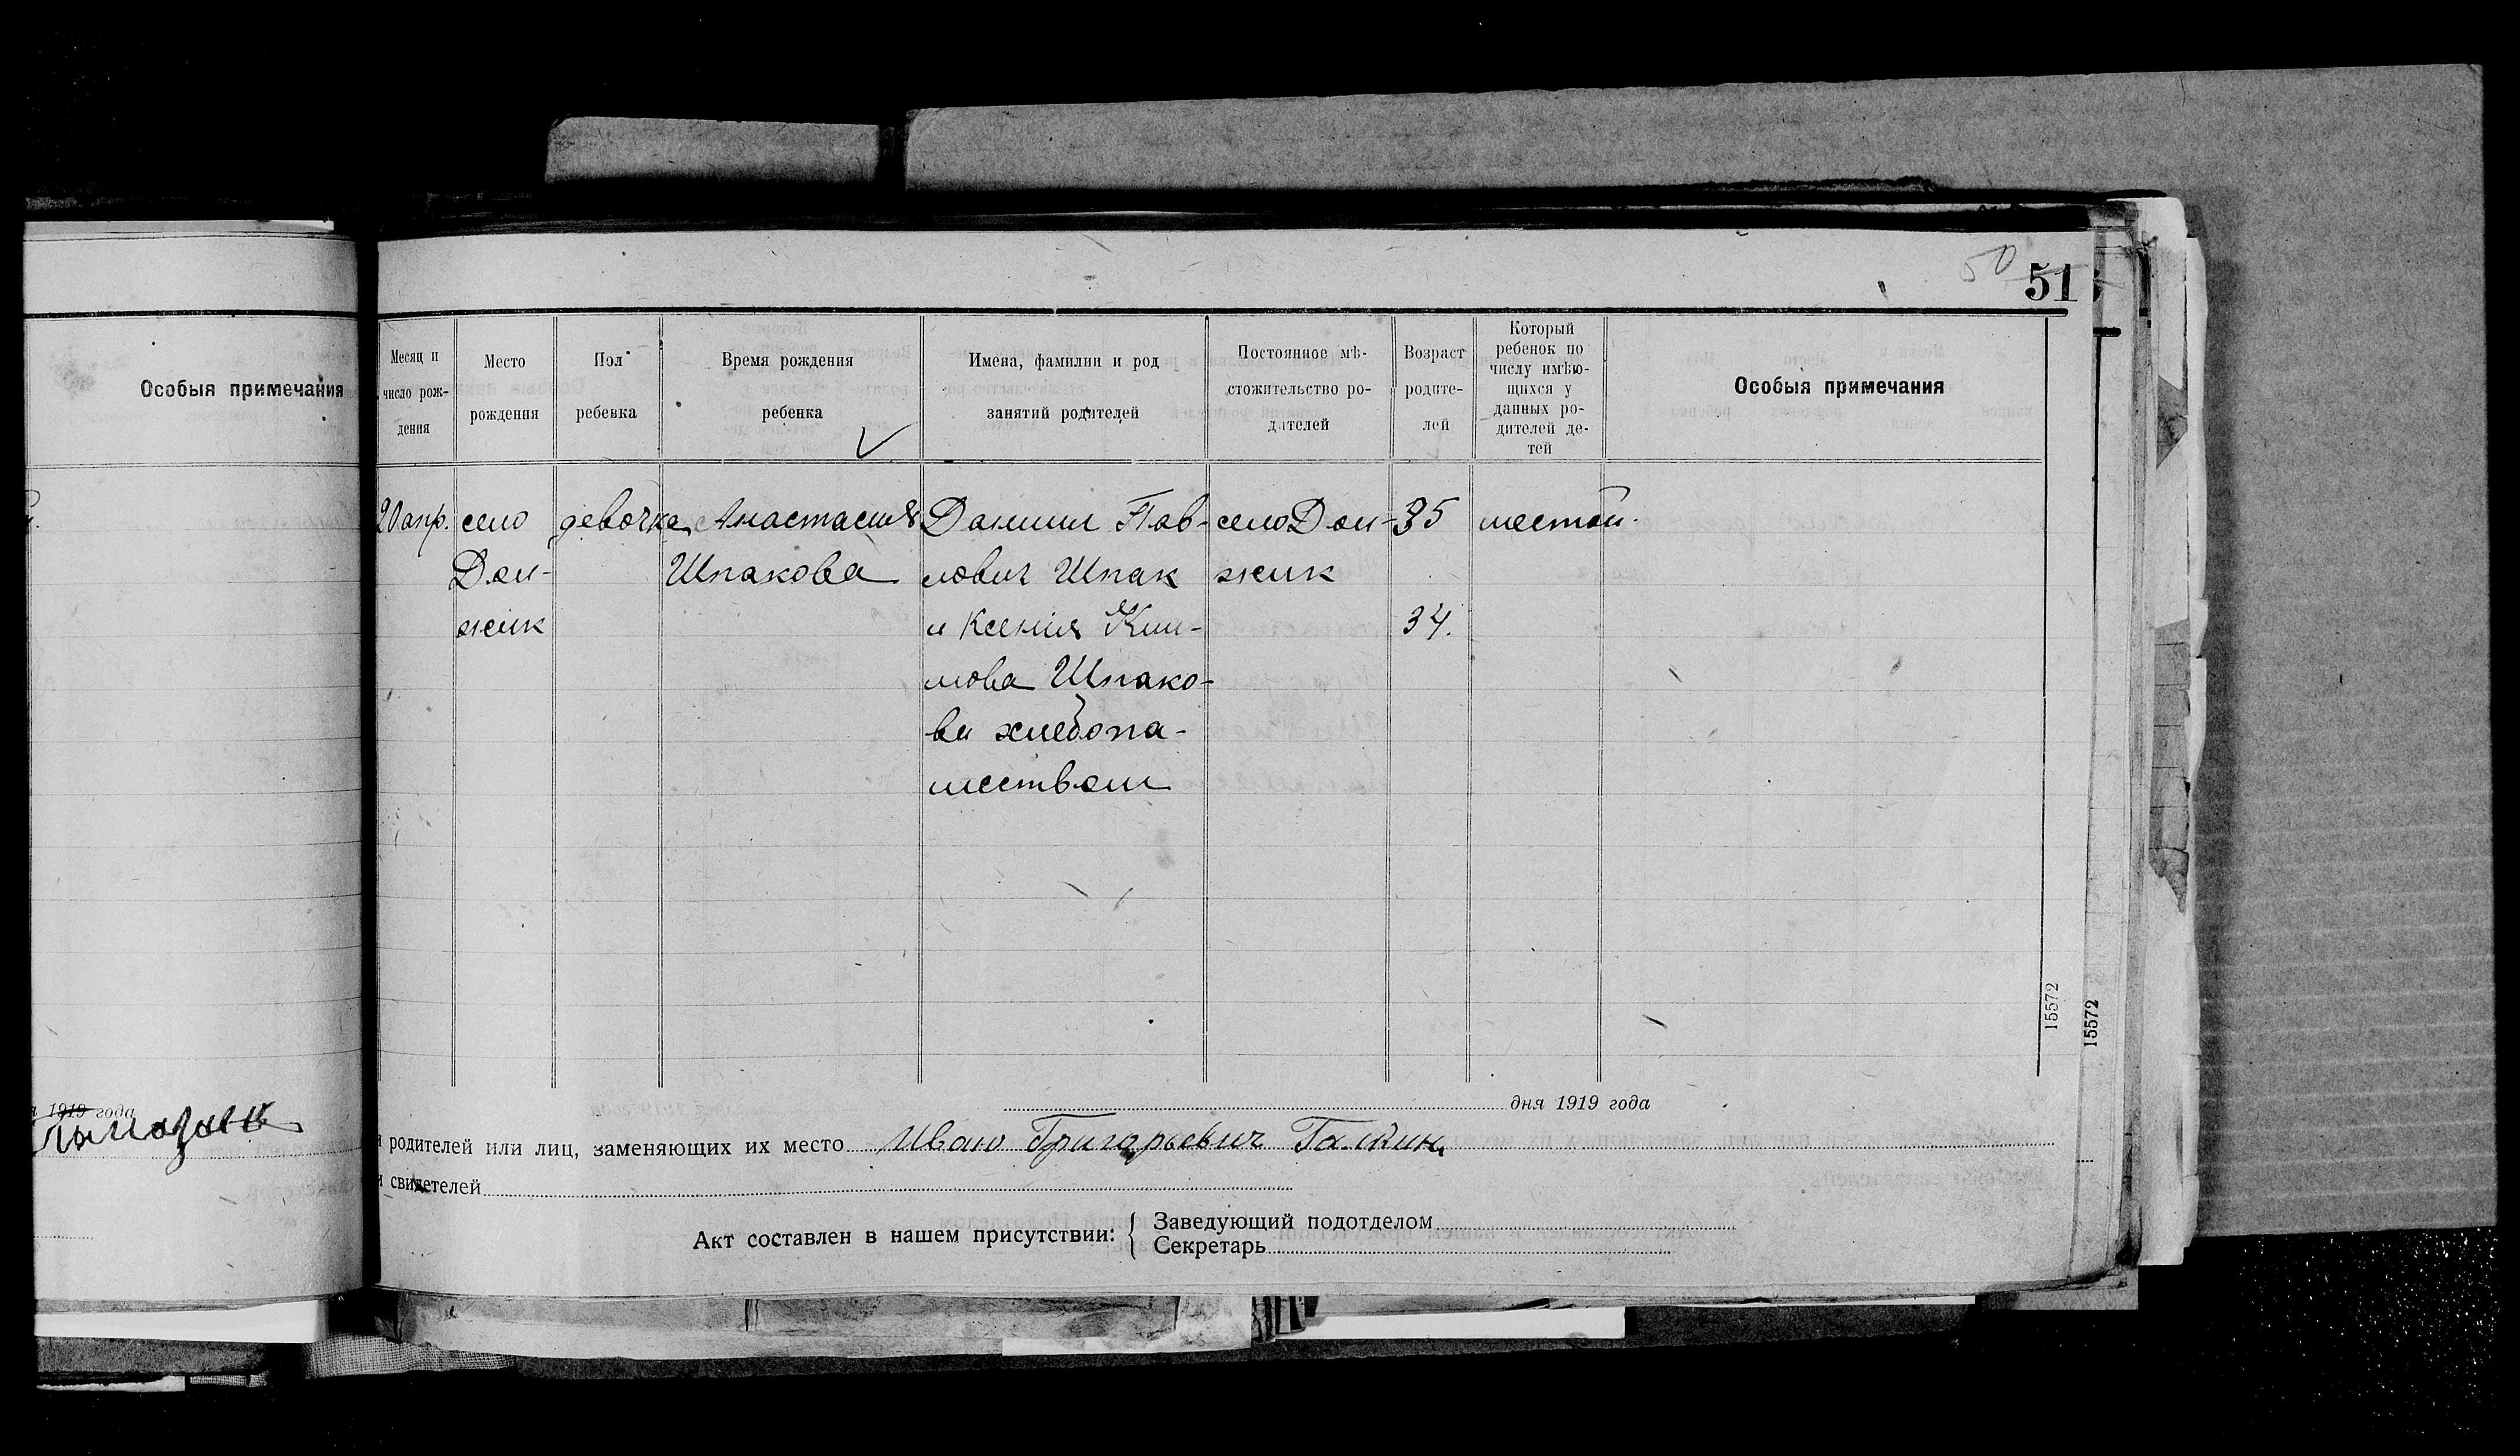 50
51
Особыя примечания
Месяц и
число рож-
дения
Место
рождения
Пол
ребенка
Время рождения
ребенка
Имена, фамилии и род
занятий родителей
Постоянное мѣ-
стожительство ро-
дителей
Возраст
родите-
лей
Который
ребенок по
числу имѣю-
щихся у
данных ро-
дителей де-
тей
Особыя примечания
20 апр.
село
Дол-
жик
девочка
Анастасия
Шпакова
Даниил Пав-
лович Шпак
и Ксения Кли-
мова Шпако-
ви хлебопа-
шеством
село Дол-
жик
35
34.
шестой.
15572
15572
1919 года
дня 1919 года
родителей или лиц, заменяющих их место Иван Григорьевич Галкин
свидетелей
Акт составлен в нашем присутствии:
Заведующий подотделом
Секретарь